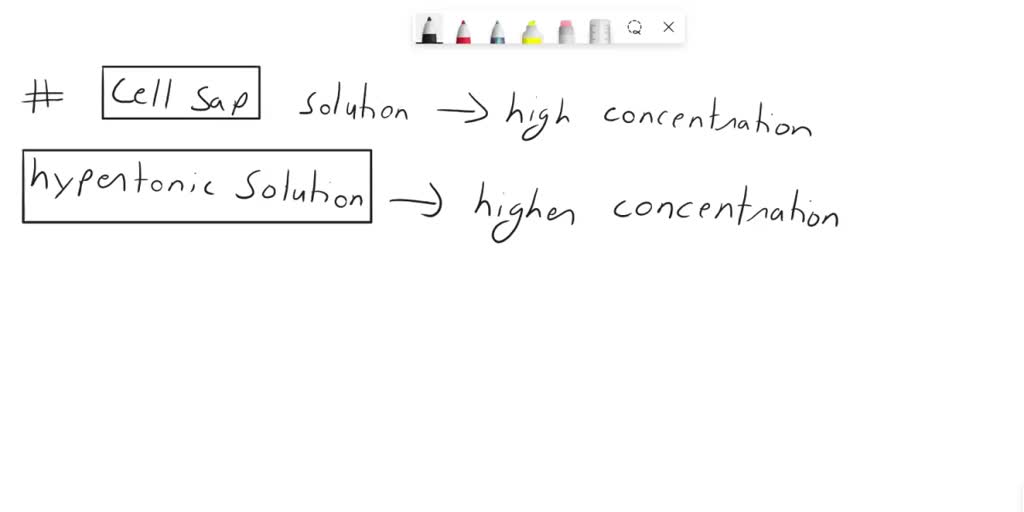 # Cell Sap solution → high concentration
hypertonic solution → higher concentration